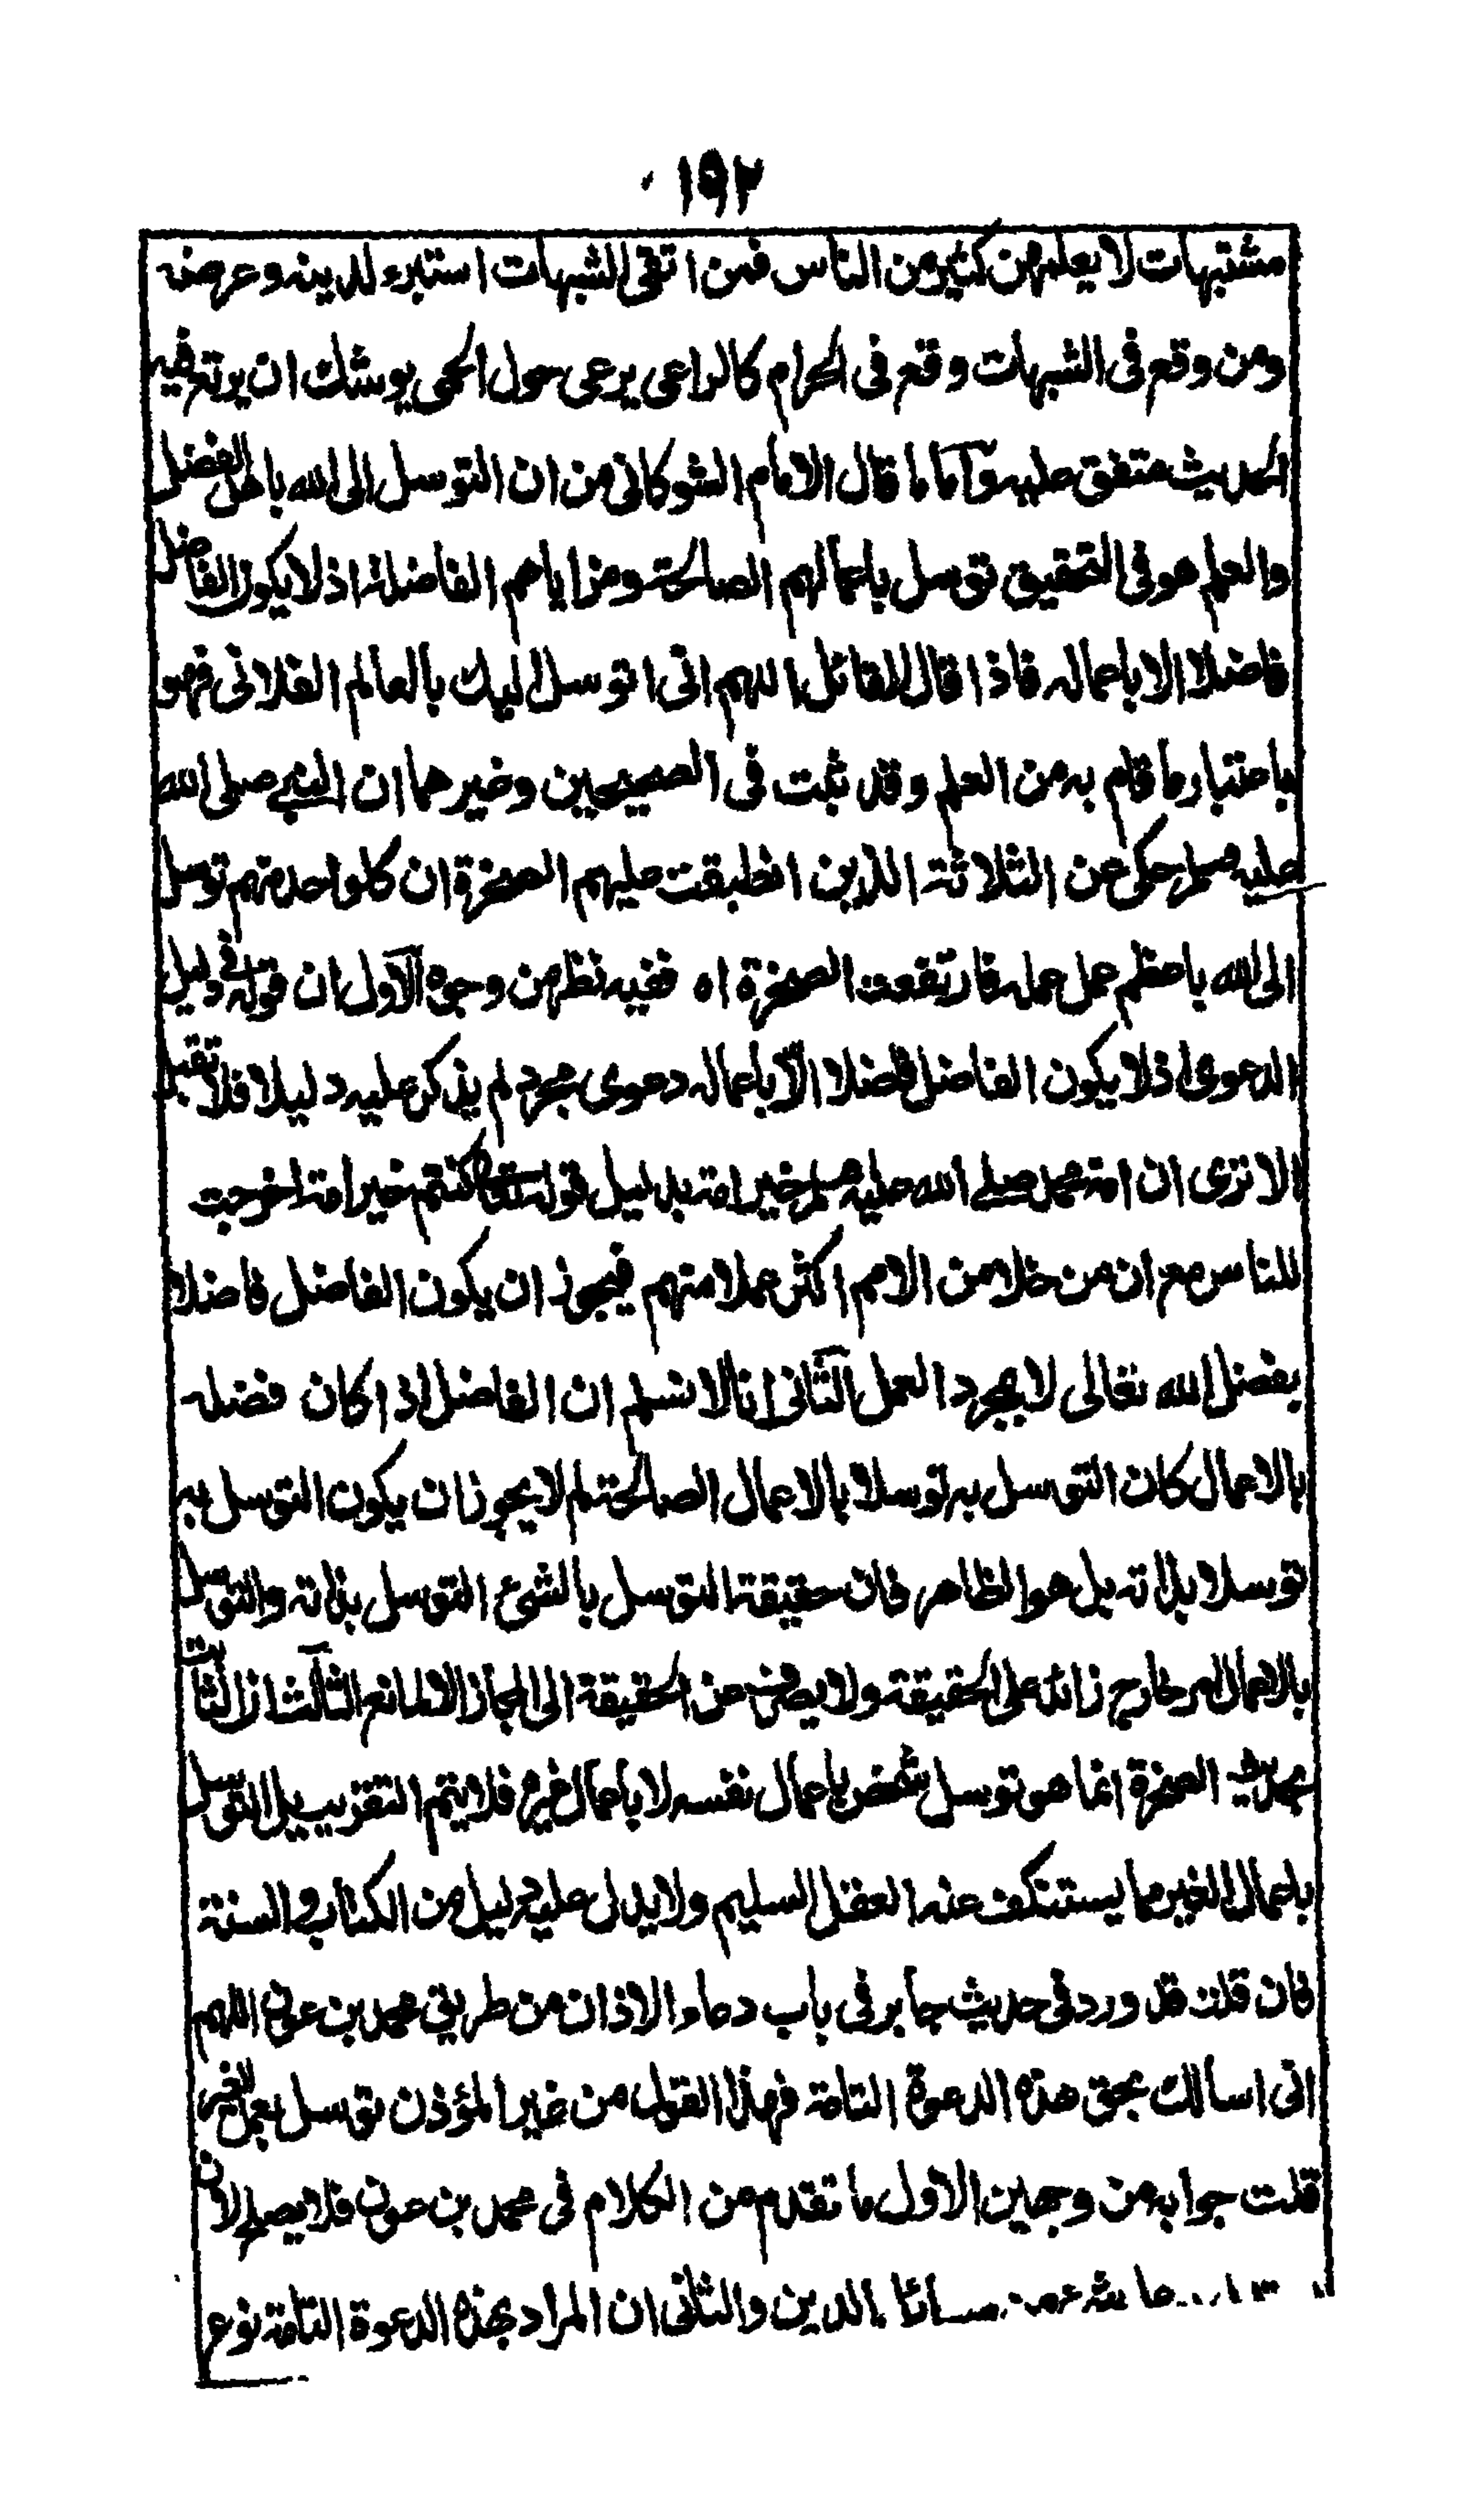 ١٩٢
مشتبهات لا يعلمهن كثير من الناس فمن اتقى الشبهات استبرء لدينه وعرضه
ومن وقع فى الشبهات وقع فى الحرام كالراعى يرعى حول الحمى يوشك ان يرتع فيه
الحديث متفق عليه وآما ما قال الامام الشوكانى من ان التوسل الى الله باهل الفضل
والعلم هو فى التحقيق توسل باعمالهم الصالحة ومزاياهم الفاضلة اذ لا يكون الفاضل
فاضلا الا باعماله فاذا قال القائل اللهم انى اتوسل اليك بالعالم الفلانى فهو
باعتبار ما قام به من العلم وقد ثبت فى الصحيحين وغيرهما ان النبى صلى الله
عليه وسلم حكى عن الثلاثة الذين انطبقت عليهم الصخرة ان كلوا احد منهم توسل
الى الله باعظم عمل عمله فارتفعت الصخرة اه ففيه نظر من وجوه الآول ان قوله فى دليل
الدعوى اذ لا يكون الفاضل فاضلا الا باعماله دعوى مجرد لم يذكر عليه دليلا فلا تقبل
الا ترى ان امة محمد صلى الله عليه وسلم خير امة بدليل قوله تعالى كنتم خير امة اخرجت
للناس مع ان من خلا من الامم اكثر عملا منهم فيجوز ان يكون الفاضل فاضلا
بفضل الله تعالى لا بمجرد العمل الثآنى انا لا نسلم ان الفاضل اذا كان فضله
بالاعمال كان التوسل به توسلا بالاعمال الصالحة لم لا يجوز ان يكون التوسل به
توسلا بذاته بل هو الظاهر فان حقيقة التوسل بالشئ التوسل بذاته والتوسل
بالاعمال امر خارج زائد على الحقيقة ولا يصرف عن الحقيقة الى المجاز الا لمانع الثآلث ان الثابت
بحديث الصخرة انما هو توسل شخص باعمال نفسه لا باعمال غيره فلا يتم التقريب بل التوسل
باعمال الغير مما يستنكف عنه العقل السليم ولا يدل عليه دليل من الكتاب والسنة
فان قلت قد ورد فى حديث جابر فى باب دعاء الاذان من طريق محمد بن عوف اللهم
انى اسالك بحق هذه الدعوة التامة فهذا القول من غير المؤذن توسل بعمل الغير
قلت جوابه من وجهين الاول ما تقدم من الكلام فى محمد بن عوف فلا يصلح لان
الدين والثانى ان المراد بهذه الدعوة التامة نوع